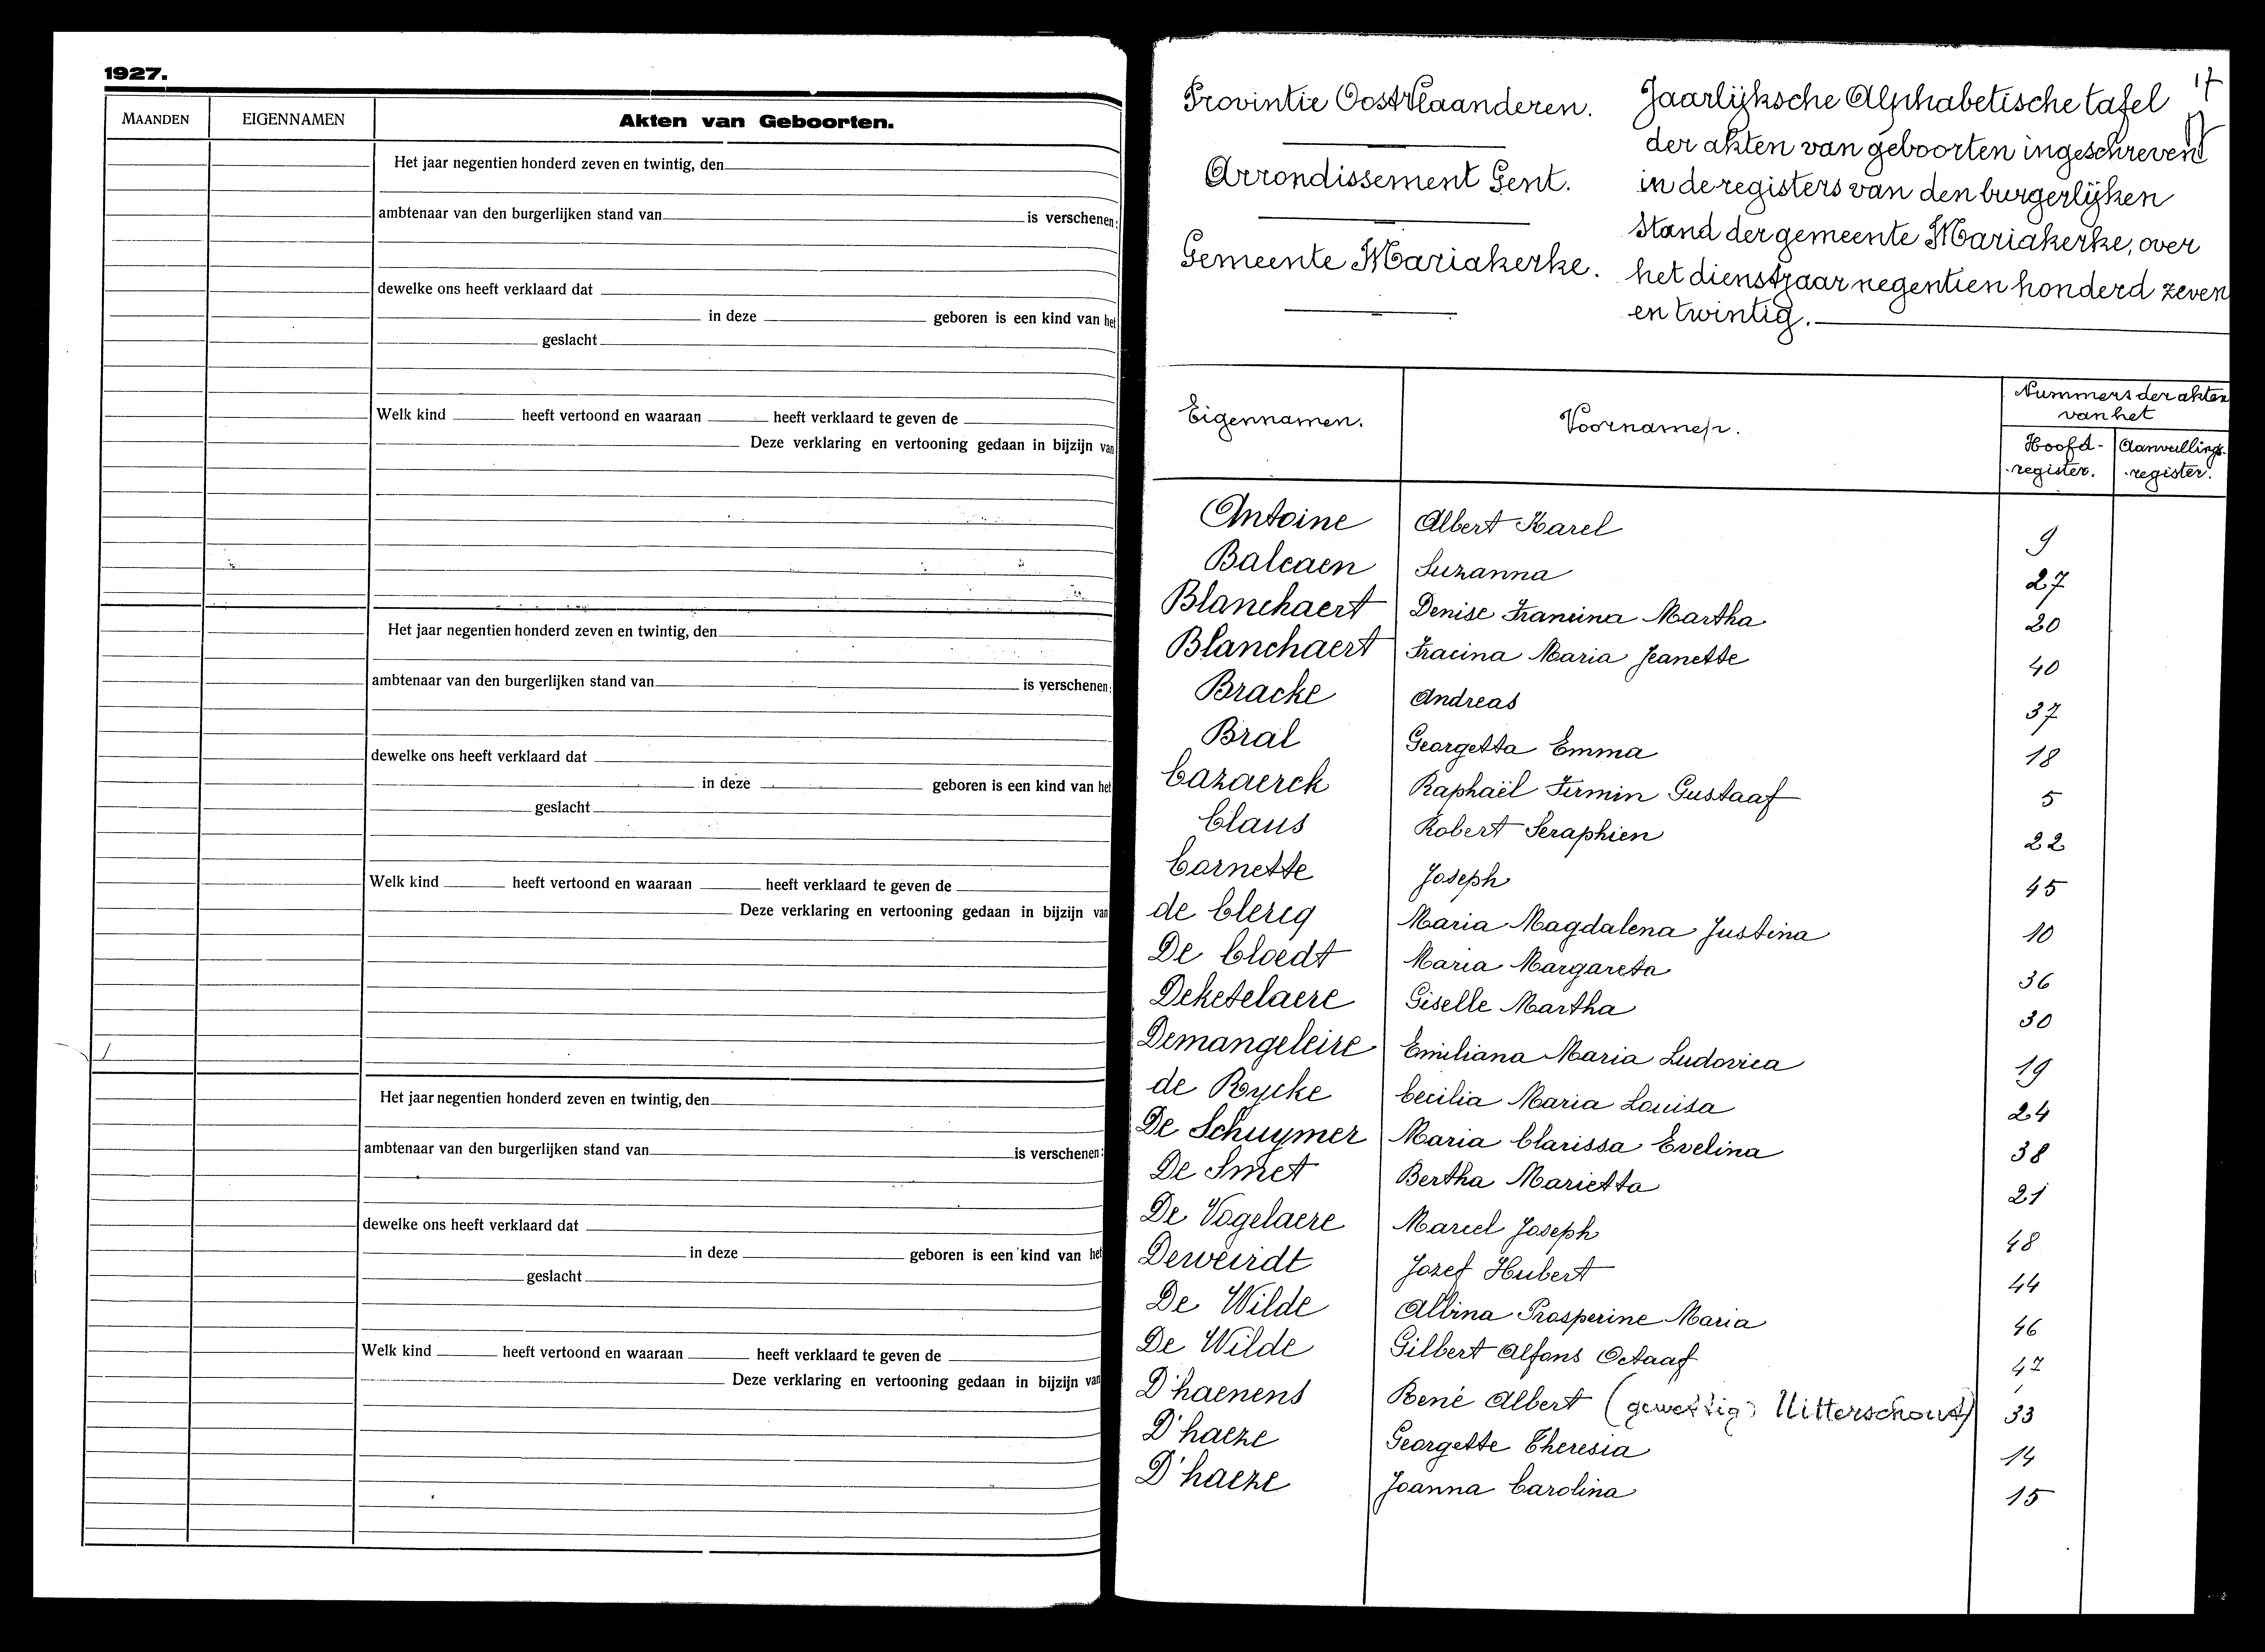 1927.
MAANDEN EIGENNAMEN Akten van Geboorten.
Het jaar negentien honderd zeven en twintig, den
ambtenaar van den burgerlijken stand van is verschenen:
dewelke ons heeft verklaard dat
in deze geboren is een kind van het
geslacht
Welk kind heeft vertoond en waaraan heeft verklaard te geven de
Deze verklaring en vertooning gedaan in bijzijn van
Het jaar negentien honderd zeven en twintig, den
ambtenaar van den burgerlijken stand van is verschenen:
dewelke ons heeft verklaard dat
in deze geboren is een kind van het
geslacht
Welk kind heeft vertoond en waaraan heeft verklaard te geven de
Deze verklaring en vertooning gedaan in bijzijn van
Het jaar negentien honderd zeven en twintig, den
ambtenaar van den burgerlijken stand van is verschenen:
dewelke ons heeft verklaard dat
in deze geboren is een kind van het
geslacht
Welk kind heeft vertoond en waaraan heeft verklaard te geven de
Deze verklaring en vertooning gedaan in bijzijn van
17
Provintie Oostvlaanderen.
Arrondissement Gent.
Gemeente Mariakerke.
Jaarlijksche Alphabetische tafel
der akten van geboorten ingeschreven
in de registers van den burgerlijken
stand der gemeente Mariakerke, over
het dienstjaar negentien honderd zeven
en twintig.
Eigennamen. Voornamen. Nummers der akten
van het
Hoofd- Aanvullings-
register. register.
Antoine Albert Karel 9
Balcaen Suzanna 27
Blanchaert Denise Francina Martha 20
Blanchaert Fracina Maria Jeanette 40
Bracke Andreas 37
Bral Georgetta Emma 18
Cazaerck Raphaël Firmin Gustaaf 5
Claus Robert Seraphien 22
Cornette Joseph 45
de Clercq Maria Magdalena Justina 10
De Cloedt Maria Margareta 36
Deketelaere Giselle Martha 30
Demangeleire Emiliana Maria Ludovica 19
de Rycke Cecilia Maria Louisa 24
De Schuymer Maria Clarissa Evelina 38
De Smet Bertha Marietta 21
De Vogelaere Marcel Joseph 48
Deweirdt Jozef Hubert 44
De Wilde Albina Prosperine Maria 46
De Wilde Gilbert Alfons Octaaf 47
D'haenens René Albert (gewettig) Uitterschout) 33
D'haeze Georgette Theresia 14
D'haeze Joanna Carolina 15